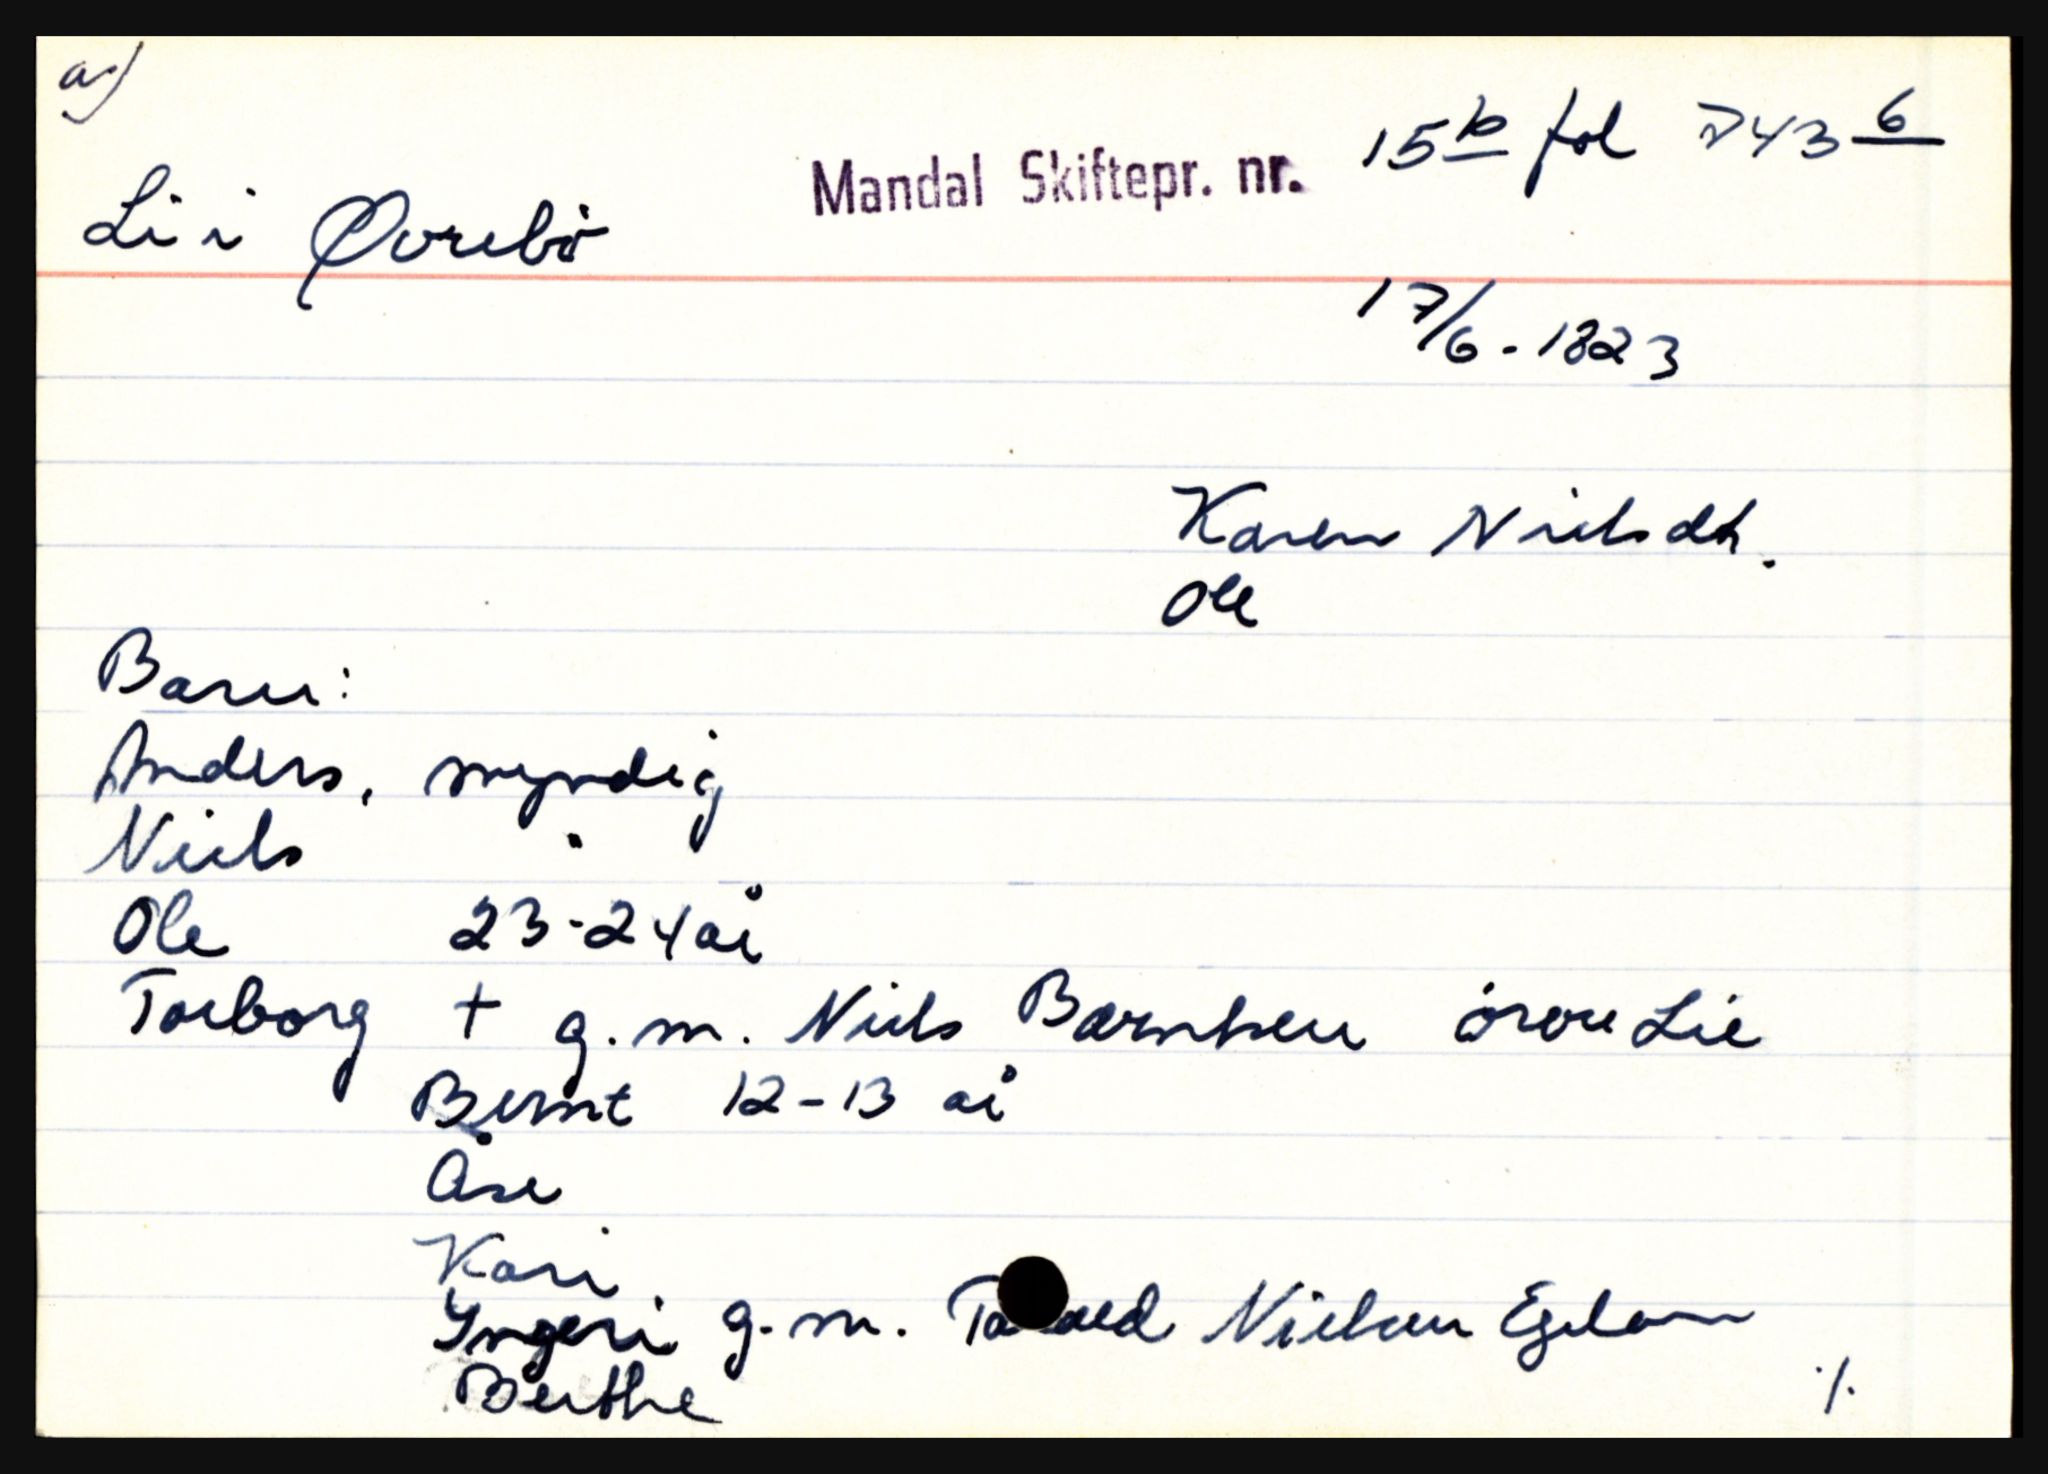 a)
Mandal Skiftepr. nr. 15b fol 743 6
Li i Øvrebö
17/6-1823
Karen Nielsdt.
Ole
Barn:
Anders, myndig
Niels "
Ole 23-24 år
Torborg + g.m. Niels Berntsen övre Lie
Bernt 12-13 år
Åse
Kari
Yngeri g.m. Nielsen Egeland
Berthe
./.